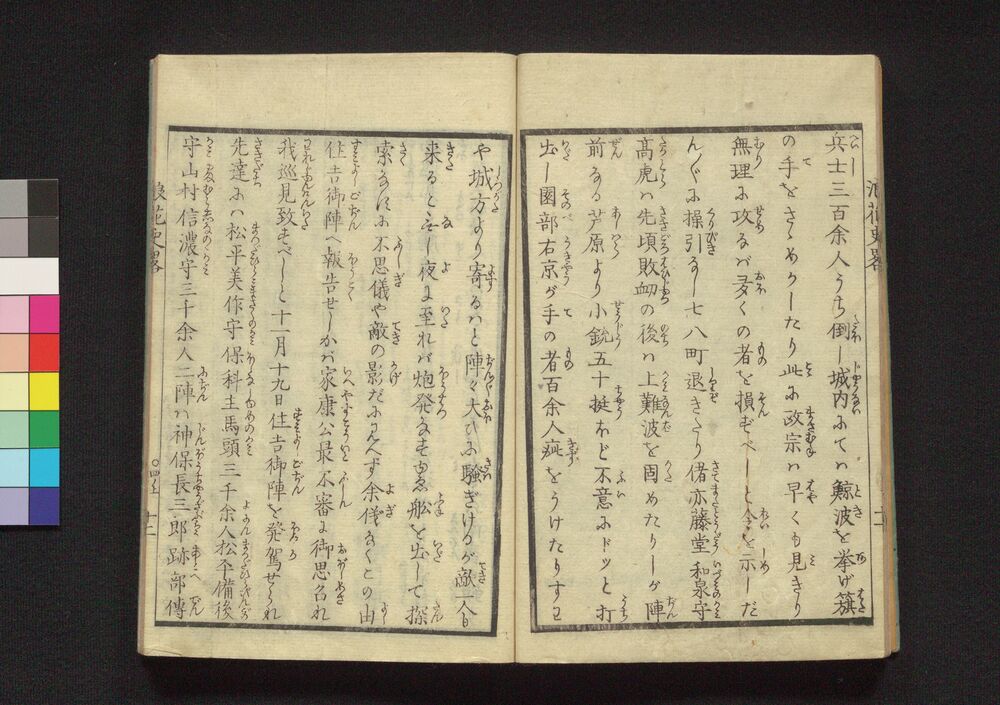 兵士三百余人うち倒し城内にてハ鯨波を挙げ籏
の手をさゝめかしたり此に政宗ハ早くも見きり
無理に攻るバ多くの者を損ずべしと令を示しだ
んぐに操引なし七八町退きたり偖亦藤堂和泉守
高虎ハ先頃敗衂の後ハ上難波を固めたりしが陣
前なる芦原より小銃五十挺ほど不意にドッと打
出し園部右京が手の者百余人疵をうけたりすは
や城方より寄るハと陣々大ひに騒ぎけるが敵一人も
来ること無し夜に至れバ炮発なすゆゑ舩を出して探
索なすに不思儀や敵の影だに見へず余儀なくこの由
住吉御陣へ報告せしかバ家康公最不審に御思召れ
我巡見致すべしと十一月十九日住吉御陣を発駕せられ
先達にハ松平美作守保科主馬頭三千余人松平備後
守山村信濃守三千余人二陣ハ神保長三郎跡部傳
浪花史畧
浪花史畧
〇四上
十二